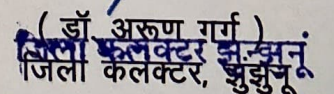 ( डॉ. अरूण गर्ग )
जिला कलक्टर झुन्झुनूं
जिला कलेक्टर, झुंझुनू